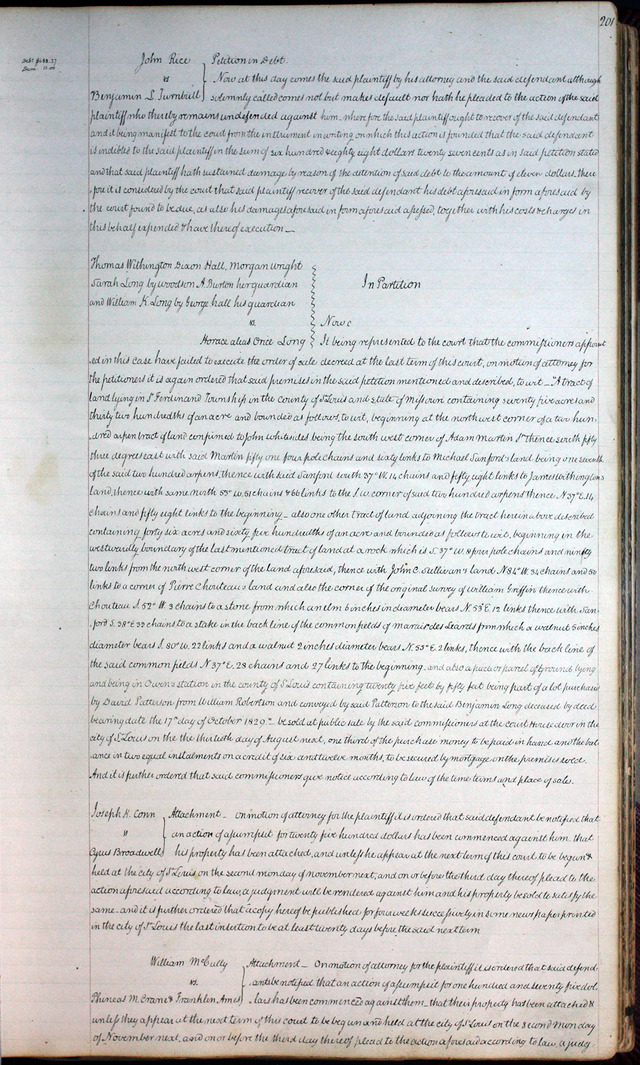 201
Debt $688.27
Dam. 11.00
John Rice Petition in Debt.
vs Now at this day comes the said plaintiff by his attorney and the said defendant although
Benjamin L. Turnbull solemnly called comes not but makes default nor hath he pleaded to the action of the said
plaintiff who thereby remains undefended against him, wherefore the said plaintiff ought to recover of the said defendant
and it being manifest to the court from the instrument in writing on which this action is founded that the said defendant
is indebted to the said plaintiff in the sum of six hundred & eighty eight dollars twenty seven cents as in said petition stated
and that said plaintiff hath sustained damage by reason of the detention of said debt to the amount of eleven dollars, there
fore it is considered by the court that said plaintiff recover of the said defendant his debt aforesaid in form aforesaid by
the court found to be due, as also his damages aforesaid in form aforesaid assessed, together with his costs & charges in
this behalf expended & have thereof execution —
Thomas Withington Dixon Hall, Morgan Wright
Sarah Long by Woodson A. Burton her guardian In Partition
and William K. Long by George Hall his guardian
vs. Now c
Horace alias Once Long It being represented to the court that the commissioners appoint
ed in this case have failed to execute the order of sale decreed at the last term of this court, on motion of attorney for
the petitioners it is again ordered that said premises in the said petition mentioned and described, to wit — "A tract of
land lying in St Ferdinand Township in the county of St Louis and state of Missouri containing seventy five acres and
thirty two hundredths of an acre and bounded as follows, to wit, beginning at the north west corner of a two hun-
dred arpen tract of land confirmed to John Whitesides being the south west corner of Adam Martin Sr thence south fifty
three degrees east with said Martin fifty one four pole chains and sixty links to Michael Sanford's land being one seventh
of the said two hundred arpens, thence with said Sanford south 37° W. 14 chains and fifty eight links to James Withington's
land, thence with same north 53° W. 51 chains & 66 links to the S.W. corner of said two hundred arpens thence N 37° E. 14
chains and fifty eight links to the beginning — also one other tract of land adjoining the tract herein above described
containing forty six acres and sixty five hundredths of an acre and bounded as follows to wit, beginning in the
westwardly boundary of the last mentioned tract of land at a rock which is S. 37° W 8 four pole chains and ninety
two links from the north west corner of the land aforesaid, thence with John C. Sullivan's land N 84° W. 34 chains and 50
links to a corner of Pierre Chouteau's land and also the corner of the original survey of William Griffin thence with
Chouteau S. 52° W. 3 chains to a stone from which an elm 6 inches in diameter bears N. 53° E. 12 links thence with San-
ford S. 28° E 22 chains to a stake in the back line of the common fields of marais des Liards from which a walnut 5 inches
diameter bears S. 80° W. 22 links and a walnut 2 inches diameter bears N. 53° E. 2 links, thence with the back line of
the said common fields N 37° E. 28 chains and 27 links to the beginning, and also a piece or parcel of ground lying
and being in Owen's station in the county of St Louis containing twenty five feet by fifty feet being part of a lot purchased
by David Patterson from William Robertson and conveyed by said Patterson to the said Benjamin Long deceased by deed
bearing date the 17th day of October 1829" — be sold at public sale by the said commissioners at the court House door in the
city of St Louis on the the thirtieth day of August next, one third of the purchase money to be paid in hand and the bal
ance in two equal instalments on a credit of six and twelve months, to be secured by mortgage on the premises sold.
And it is further ordered that said commissioners give notice according to law of the time terms and place of sale.
Joseph K. Conn Attachment — on motion of attorney for the plaintiff it is ordered that said defendant be notified that
vs an action of assumpsit for twenty five hundred dollars has been commenced against him that
Cyrus Broadwell his property has been attached, and unless he appear at the next term of this court to be begun &
held at the city of St Louis, on the second monday of november next, and on or before the third day thereof plead to the
action aforesaid according to law, a judgment will be rendered against him and his property be sold to satisfy the
same — and it is further ordered that a copy hereof be published for four weeks successively in some newspaper printed
in the city of St Louis the last insertion to be at least twenty days before the said next term
William McCully Attachment — On motion of attorney for the plaintiff it is ordered that said defend-
vs. ants be notified that an action of assumpsit for one hundred and seventy five dol
Phineas M. Crane & Franklin Ames lars has been commenced against them — that their property has been attached &
unless they appear at the next term of this court to be begun and held at the city of St Louis on the second Monday
of November next, and on or before the third day thereof plead to the action aforesaid according to law, a judg-